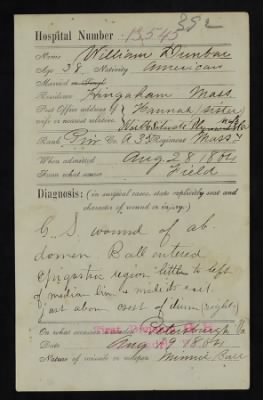 892
Hospital Number 13545
Name William Dunbar
Age 38 Nativity American
Married or Single
Residence Hingham Mass
Post Office address of Hannah (sister)
wife or nearest relative
Rank Priv Co. A 35 Regiment Mass
When admitted Aug 28 1864
From what source Field
Diagnosis: (in surgical cases, state explicitly seat and
character of wound or injury:)
G. S. wound of ab
domen. Ball entered
epigastric region little to left
of median line &
just above crest of (right)
On what occasion Petersburgh Va
Date Aug 19 1864
Nature of missile or weapon Minnie Ball